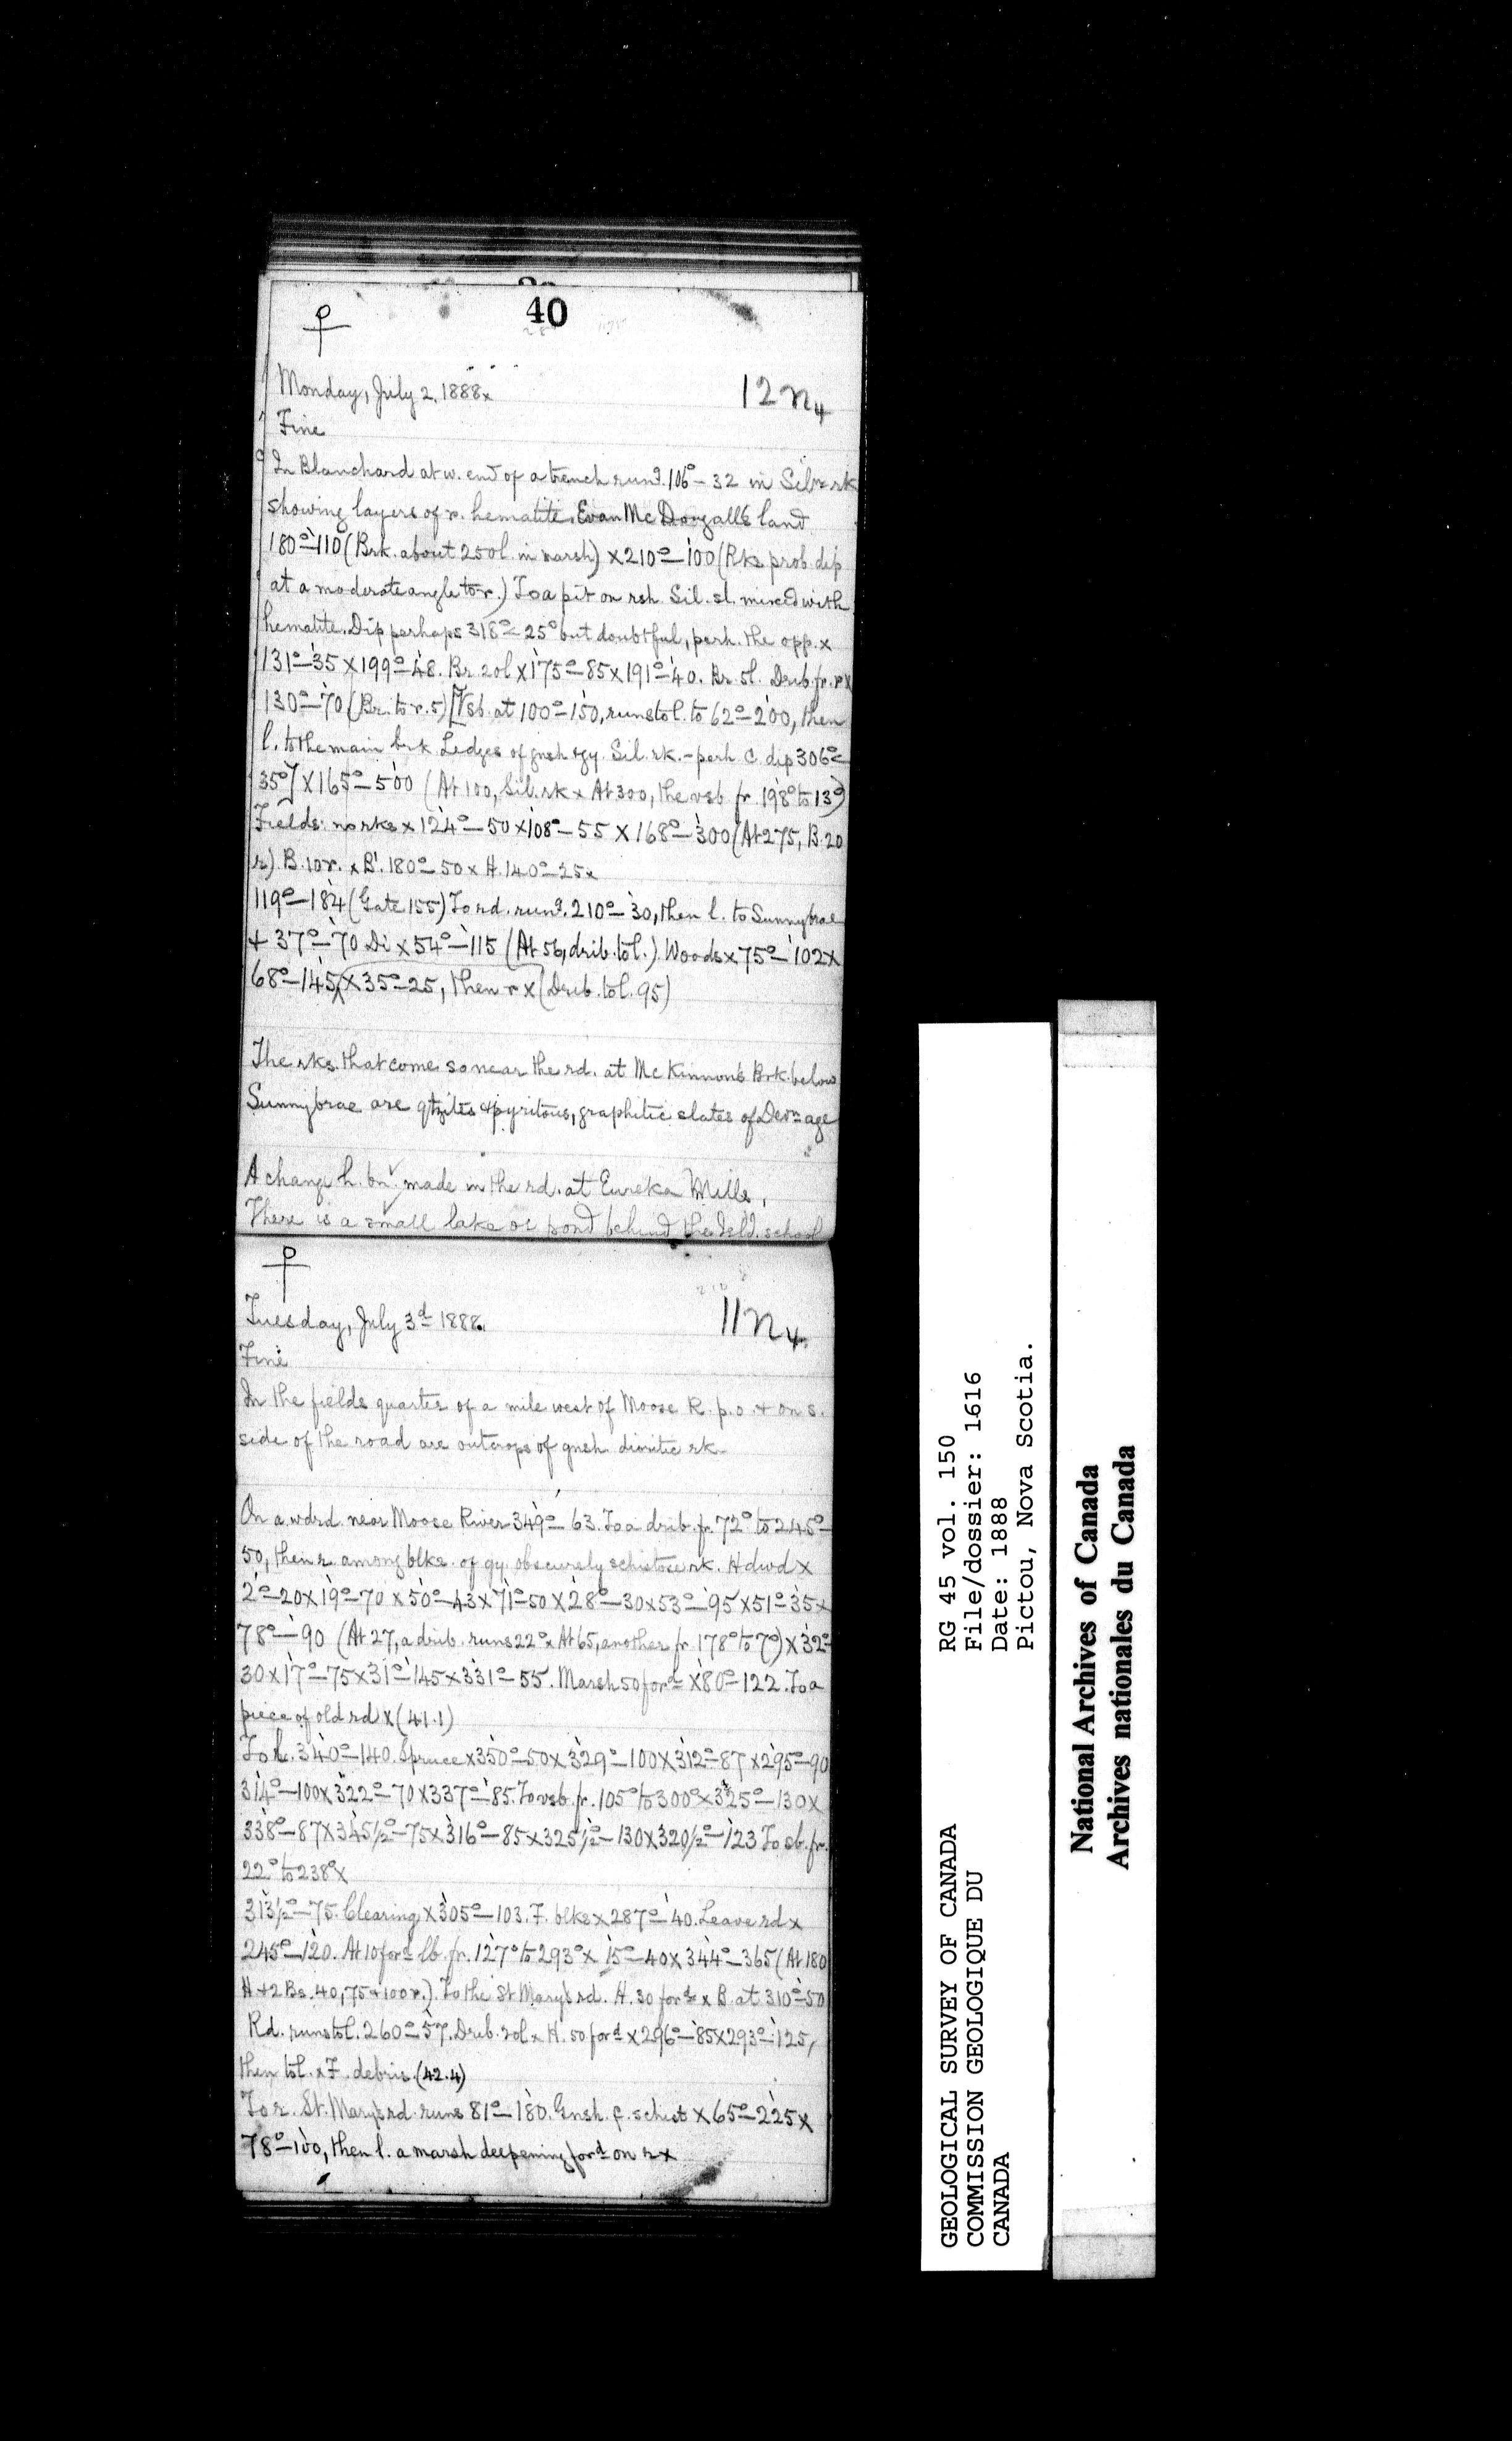 40
Monday, July 2, 1888x
12 n 4
Fine
In Blanchard at w. end of a trench rung. 106° – 32 in Siln rk
showing layers of r. hematite. Evan McDougall's land
180°–110 (Brk. about 250 l. in marsh) x 210°–100 (Rks prob. dip
at a moderate angle to r.) To a pit on rsh. Sil. sl. mixed with
hematite. Dip perhaps 318°–25° but doubtful, perh. the opp. x
131°–35 x 199°–48. Br 20 l x 175°–85 x 191°–40. Br. 5 l. Drib. fr. r x
130°–70 (Br. to r. 5) [Vsb. at 100°–150, runs to l. to 62°–200, then
l. to the main brk Ledges of gnsh gy. Sil. rk. – perh. C. dip 306°–
35°] x 165°–500 (At 100, Sil. rk x At 300, the vsb fr. 198° to 13°)
Fields: no rks x 124°–50 x 108°–55 x 168°–300 (At 275, B. 20
r) B. 10 r. x B'. 180°–50 x H. 140°–25x
119°–184 (Gate 155) To rd. rung. 210°–30, then l. to Sunnybrae
+ 37°–70 Di x 54°–115 (At 56, drib. to l.) Woods x 75°–102 x
68°–145 x 35°–25, then r x (Drib. to l. 95)
The rks. that come so near the rd. at McKinnon's Brk. below
Sunnybrae are qtzites & pyritous, graphitic slates of Devn age
A change h. bn. made in the rd. at Eureka Mills,
There is a small lake or pond behind the school
Tuesday, July 3d 1888.
11 n 4
Fine
In the fields quarter of a mile west of Moose R. p.o. + on s.
side of the road are outcrops of gnsh dioritic rk.
On a wdrd near Moose River 349°–63. To a drib. fr. 72° to 245°–
50, then r. among blks. of gy. obscurely schistose rk. Hdwd x
2°–20 x 19°–70 x 50°–43 x 71°–50 x 28°–30 x 53°–95 x 51°–35 x
78°–90 (At 27, a drib. runs 22° x At 65, another fr. 178° to 7°) x 32°–
30 x 17°–75 x 31°–145 x 331°–55. Marsh 50 ford x 80°–122. To a
piece of old rd x (41.1)
To l. 340°–140. Spruce x 350°–50 x 329°–100 x 312°–87 x 295°–90
314°–100 x 322°–70 x 337°–85. To vsb. fr. 105° to 300° x 325°–130 x
338°–87 x 345½°–75 x 316°–85 x 325½°–130 x 320½°–123 To sb. fr.
22° to 238° x
313½°–75. Clearing x 305°–103. F. blks x 287°–40. Leave rd x
245°–120. At 10 ford lb. fr. 127° to 293° x 15°–40 x 344°–365 (At 180
H + 2 Bs. 40, 75 + 100 r.) To the St Mary's rd. H. 30 ford x B. at 310°–50
Rd. runs to l. 260°–57. Drib. 20 l x H. 50 ford x 296°–85 x 293°–125,
then to l. x F. debris. (42.4)
To r. St. Mary's rd. runs 81°–180. Gnsh. f. schist x 65°–225 x
78°–100, then l. a marsh deepening ford on r x
GEOLOGICAL SURVEY OF CANADA
COMMISSION GEOLOGIQUE DU
CANADA
RG 45 vol. 150
File/dossier: 1616
Date: 1888
Pictou, Nova Scotia.
National Archives of Canada
Archives nationales du Canada